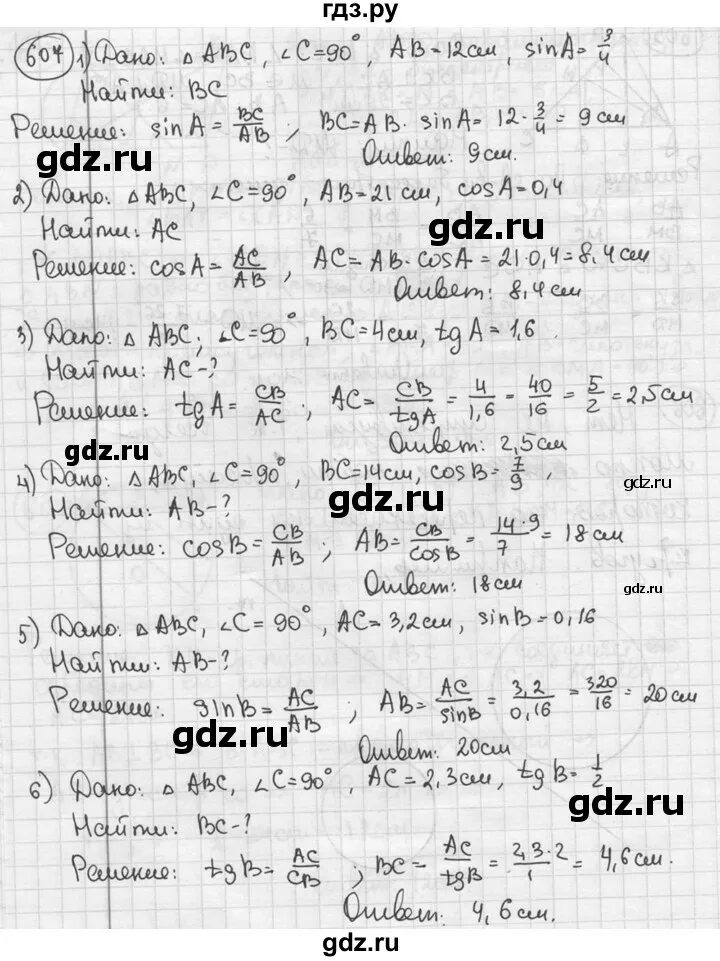 гдз.ру
607 1) Дано: △ ABC, ∠C=90°, AB=12см, sinA=3/4
Найти: BC
Решение: sinA=BC/AB; BC=AB·sinA=12·3/4=9см
Ответ: 9см.
gdz.ru
2) Дано: △ABC, ∠C=90°, AB=21см, cosA=0,4
Найти: AC
gdz.ru
Решение: cosA=AC/AB, AC=AB·cosA=21·0,4=8,4см
Ответ: 8,4см
gdz.ru
3) Дано: △ ABC; ∠C=90°, BC=4см, tgA=1,6.
Найти: AC-?
Решение: tgA=CB/AC; AC=CB/tgA=4/1,6=40/16=5/2=2,5см
Ответ: 2,5см
gdz.ru
4) Дано: △ABC, ∠C=90°, BC=14см, cosB=7/9,
gdz.ru
Найти: AB-?
gdz.ru
Решение: cosB=CB/AB; AB=CB/cosB=14·9/7=18см
Ответ: 18см
gdz.ru
5) Дано: △ABC, ∠C=90°, AC=3,2см, sinB=0,16
Найти: AB-?
Решение: sinB=AC/AB; AB=AC/sinB=3,2/0,16=320/16=20см
gdz.ru
Ответ: 20см
6) Дано: △ABC, ∠C=90°, AC=2,3см, tgB=1/2
gdz.ru
Найти: BC-?
Решение: tgB=AC/CB; BC=AC/tgB=2,3·2/1=4,6см.
Ответ: 4,6см.
gdz.ru
gdz.ru